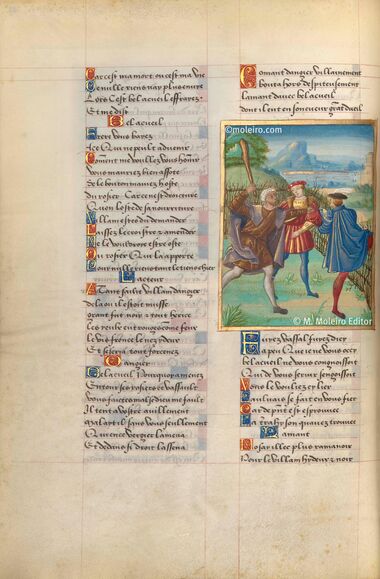 Car cest ma mort ou cest ma vie
De nulle riens nay plus enuie
Lors cest bel acueil effrayez
Et me dist
Bel acueil
Frere vous bayez
A ce qui ne peult aduenir
Comment me voulez vous honnir
Vous mauriez bien assote
Se le bouton mauiez oste
Du rosier Car cest droicture
Quon loste de sa nourriture
Villain estes du demander
Laissez le croistre et amender
Ne le vouldroye estre oste
Du rosier qui la apporte
Pour nulle riens tant le tiens chier
Lacteur
Atant sault villain dangier
De la ou il estoit musse
Grant fut noir et tout herice
Les yeulx eut rouges comme feu
Le vis fronce le nez
Et sescria tout forcenez
Dangier
Bel acueil Pourquoy amenez
Entour ses rosiers ce vassault
Vous faictes mal se dieu me sault
Il tent a vostre auillement
Mal ait il sans vous seullement
Qui en ce vergier lamena
Et
Comant dangier villainement
Bouta hors despiteusement
Lamant dauec bel acueil
Dont il eut en son cueur grant dueil
©moleiro.com
© M. Moleiro Editor
Fuyez vassal fuyez dicy
A peu que je ne vous occy
Bel acueil ne vous congnoissoit
Qui de vous seruir sengoissoit
Vous le voulez
Pas ne
Car
La trahison quauez trouuee
Lamant
Plus nosay illec plus remanoir
Pour le villain hydeux et noir